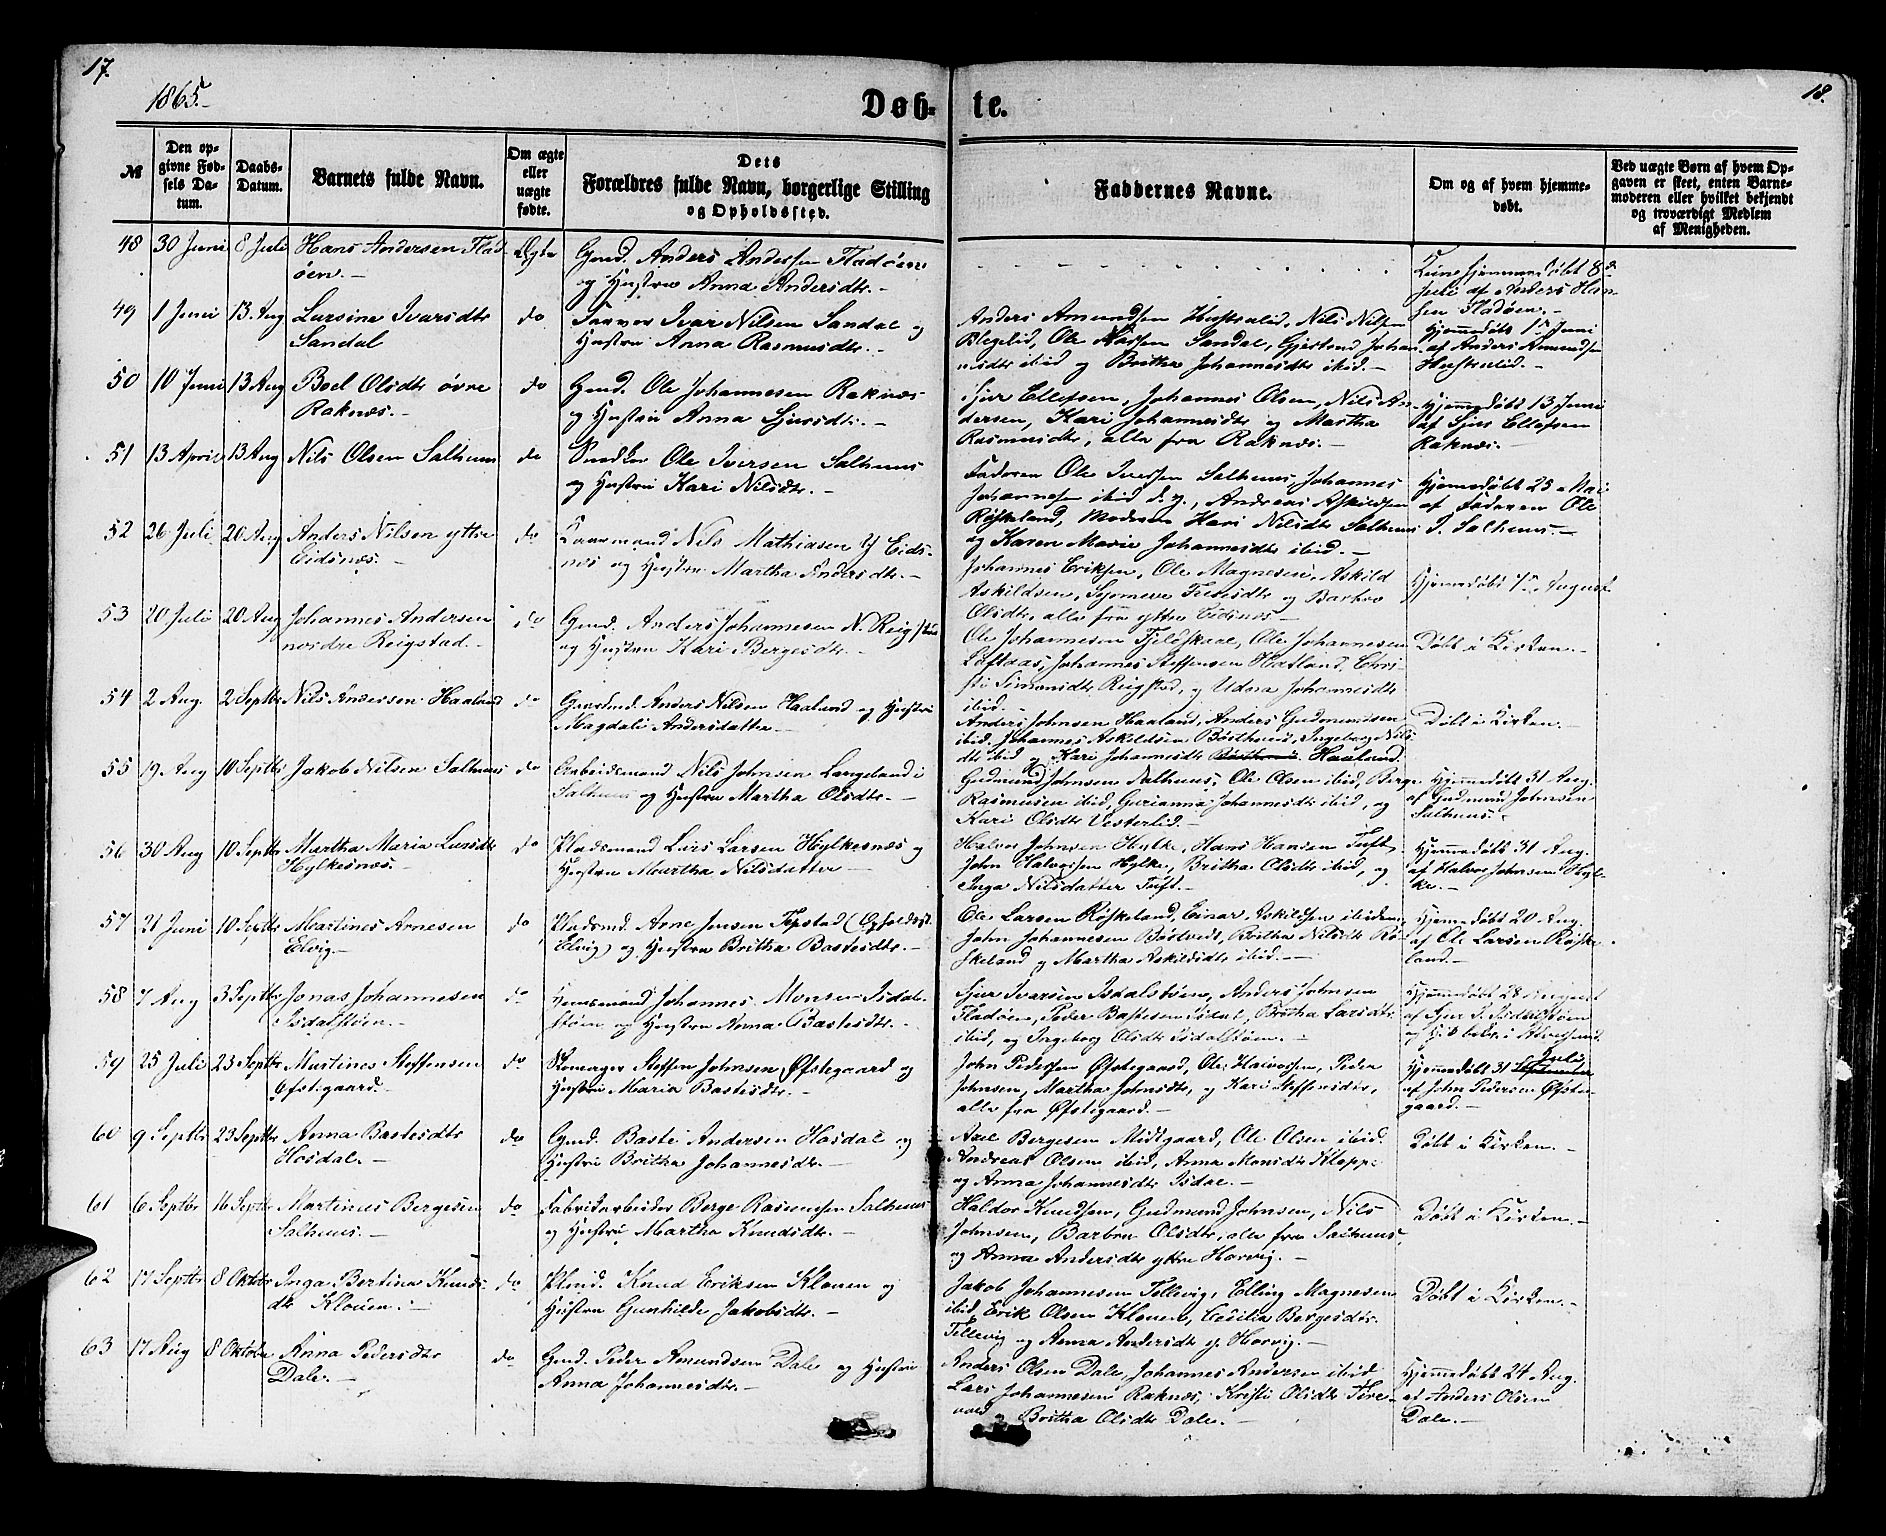 17.
18.
1865.-
Døb- te.
№
Den op-
givne Fød-
sels Da-
tum.
Daabs-
Datum.
Barnets fulde Navn.
Om ægte
eller
uægte
fødte.
Dets
Forældres fulde Navn, borgerlige Stilling
og Opholdssted.
Faddernes Navne.
Om og af hvem hjemme-
døbt.
Ved uægte Børn af hvem Op-
gaven er skeet, enten Barne-
moderen eller hvilket bekjendt
og troværdigt Medlem
af Menigheden.
48 30 Juni 8 Juli Hans Andersen Flad-
øen.-
Ægte
Gmd. Anders Andersen Fladøen
og Hustru Anna Andersdtr.-
Kun hjemmedøbt 8de
Juli af Anders Han-
sen Fladøen.-
49 1 Juni 13 Aug Larsine Ivarsdtr
Sandal
do
Ivar Nilsen Sandal og
Hustru Anna Rasmusdtr.-
Anders Amundsen Hustrulid, Nils Nilsen
Blegelid, Ole Larsen Sandal, Gjertrud Johan-
nesdtr ibid og Britha Johannesdtr ibid.-
Hjemmedøbt 1ste Juni
af Anders Amundsen
Hustrulid.-
50 10 Juni 13 Aug Boel Olsdtr øvre
Raknæs.-
do
Gmd. Ole Johannesen Raknæs
og Hustru Anna Sjursdtr.-
Sjur Ellefsen, Johannes Olsen, Nils An-
dersen, Kari Johannesdtr og Martha
Rasmusdtr, alle fra Raknæs.-
Hjemmedøbt 13 Juni
af Sjur Ellefsen
Raknæs.-
51 13 April 13 Aug Nils Olsen Salhuus
do
Snedker Ole Iversen Salhuus
og Hustru Kari Nilsdtr.-
Faderen Ole Iversen Salhuus, Johannes
Johannesen ibid d. y., Andreas Askildsen
Røskeland, Moderen Kari Nilsdtr Salhuus
og Karen Marie Johannesdtr ibid.-
Hjemmedøbt 25 Mai
af Faderen Ole
I. Salhuus.-
52 26 Juli 20 Aug Anders Nilsen yttre
Eidsnæs.-
do
Nils Mathiasen Y Eids-
næs og Hustru Martha Andersdtr.-
Johannes Eriksen, Ole Magnesen, Askild
Askildsen, og Barbro
Olsdtr, alle fra yttre Eidsnæs.-
Hjemmedøbt 1ste August
53 20 Juli 20 Aug Johannes Andersen
nordre Reigstad.-
do
Gmd. Anders Johannesen N. Reigstad
og Hustru Kari Bergesdtr.-
Ole Johannesen Fjeldskaar, Ole Johannesen
Loftaas, Johannes Steffensen Hatland, Chri-
sti Simonsdtr Reigstad, og Udna Johannesdtr
ibid.-
Døbt i Kirken.-
54 2 Aug. 2 Septbr Nils Andersen Haaland
do
Anders Nilsen Haaland og Hustru
Magdali Andersdatter.-
Anders Johnsen Haaland, Anders Gudmundsen
ibid, Johannes Askildsen Børtheim, Ingeborg Nils-
dtr ibid og Kari Johannesdtr Haaland.
Døbt i Kirken.-
55 19 Aug 10 Septbr Jakob Nilsen Salhuus
do
Arbeidsmand Nils Johnsen Langeland i
Salhuus og Hustru Martha Olsdtr.-
Gudmund Johnsen Salhuus, Ole Olsen ibid, Berge
Rasmusen ibid, Gurianna Johannesdtr ibid, og
Kari Olsdtr Vesterlid.-
Hjemmedøbt 31 Aug.
af Gudmund Johnsen
Salhuus.-
56 30 Aug 10 Septbr Martha Maria Larsdtr
Hylkesnæs.-
do
Pladsmand Lars Larsen Hylkesnæs og
Hustru Martha Nilsdatter.-
Halvor Johnsen Hylke, Hans Hansen Tuft,
John Halvorsen Hylke, Britha Olsdtr ibid, og
Inga Nilsdatter Tuft.-
Hjemmedøbt 31 Aug.
af Halvor Johnsen Hyl-
ke.-
57 21 Juni 10 Septbr Martines Arnesen
Elvig.-
do
Pladsmd. Arne Jensen Tepstad (Opholdsst.
Elvig) og Hustru Britha Bastesdtr.-
Ole Larsen Røskeland, Einar Askildsen ibidem,
John Johannesen Bøstvedt, Britha Nilsdtr Rø-
skeland og Martha Askildsdtr ibid.-
Hjemmedøbt 20 Aug.
af Ole Larsen Røske-
land.-
58 7 Aug 3 Septbr Jonas Johannesen
Isdalstøen.-
do
Huusmand Johannes Monsen Isdal-
støen og Hustru Anna Bastesdtr.-
Sjur Ivarsen Isdalstøen, Anders Johnsen
Fladøen, Peder Bastesen Isdal, Britha Larsdtr
ibid, og Ingeborg Olsdtr Isdalstøen.-
Hjemmedøbt 28 August
af Sjur I. Isdalstøen
59 25 Juli 23 Septbr Martines Steffensen
Øfstegaard.-
do
Skomager Steffen Johnsen Øfstegaard og
Hustru Maria Bastesdtr.-
John Pedersen Øfstegaard, Ole Halvorsen, Peder
Johnsen, Martha Johnsdtr, og Kari Steffensdtr,
alle fra Øfstegaard.-
Hjemmedøbt 31 September Juli
af John Pedersen Øfste-
gaard.-
60 9 Septbr 23 Septbr Anna Bastesdtr
Hosdal.-
do
Gmd. Baste Andersen Hosdal og
Hustru Britha Johannesdtr.-
Axel Bergesen Midtgaard, Ole Olsen ibid.
Andreas Olsen ibid, Anna Monsdtr Kloppe
og Anna Johannesdtr Isdal.-
Døbt i Kirken.-
61 6 Septbr 16 Septbr Martinus Bergesen
Salhuus.-
do
Fabrikarbeider Berge Rasmusen Salhuus
og Hustru Martha Knudsdtr.-
Haldor Knudsen, Gudmund Johnsen, Nils
Johnsen, Barbra Olsdtr, alle fra Salhuus,
og Anna Andersdtr yttre Horvig.-
Døbt i Kirken.-
62 17 Septbr 8 Oktobr Inga Bertina Knuds-
dtr Klouen.-
do
Knud Eriksen Klouen og
Hustru Gunhilde Jakobsdtr.-
Jakob Johannesen Tellevig, Elling Magnesen
ibid, Erik Olsen Klouen, Cecilia Bergesdtr
Tellevig og Anna Andersdtr y. Horvig.-
Døbt i Kirken.-
63 17 Aug 8 Oktobr Anna Pedersdtr
Dale.-
do
Gmd. Peder Amundsen Dale og Hustru
Anna Johannesdtr.-
Anders Olsen Dale, Johannes Andersen ibid
Lars Johannesen Raknæs, Kristi Olsdtr Tvei-
vold og Britha Olsdtr Dale.-
Hjemmedøbt 24 Aug.
af Anders Olsen
Dale.-